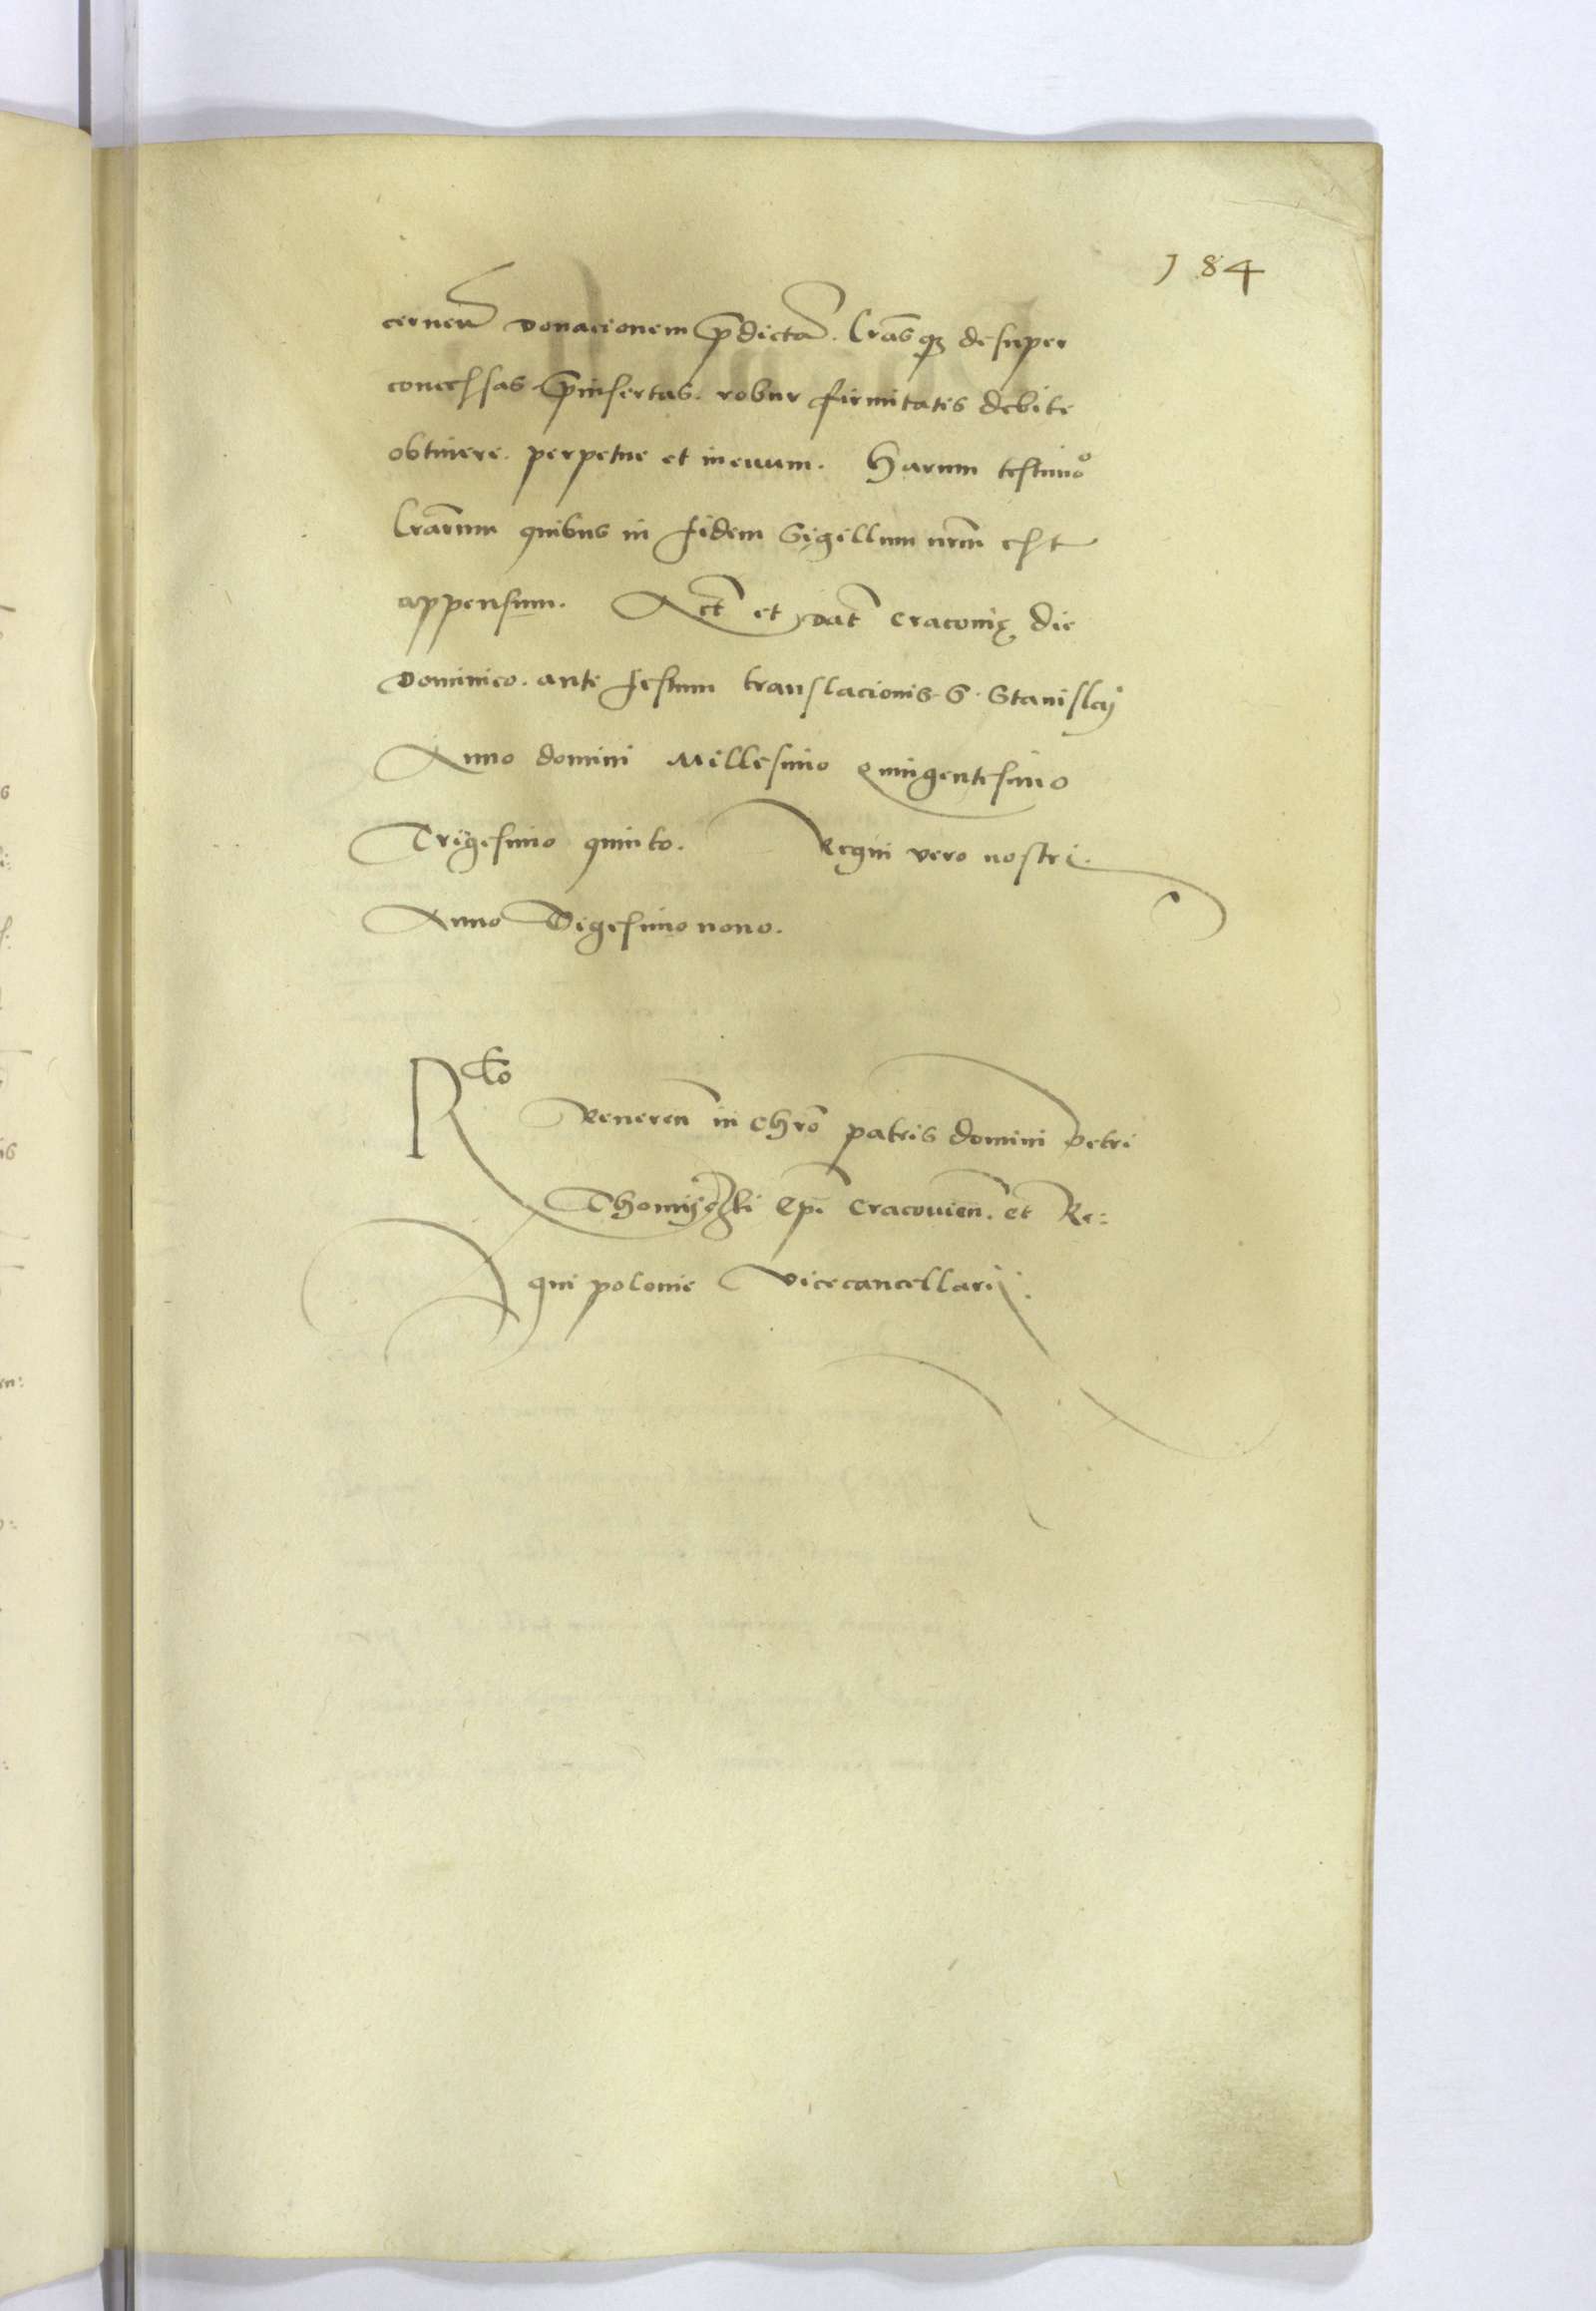 184
cernen̄ donacionem p̄dictā. Lr̄asq₃ desuper
concessas p̄insertas. robur firmitatis debite
obtinere. perpetue et in euum. Harum testimoº
Lr̄arum quibus in fidem Sigillum nr̄m est
appensum. Act̄ et dat̄ Cracouię die
Dominico. ante festum translacionis. S. Stanislaij
Anno domini Millesimo Quingentesimo
Trigesimo quinto. Regni vero nostri.
Anno Vigesimo nono.
Rl̄o
Reueren̄ in Chr̄o patris domini Petri
Thomijczki Ep̄i Cracouien̄. et Re:
gni polonie Vicecancellarij.